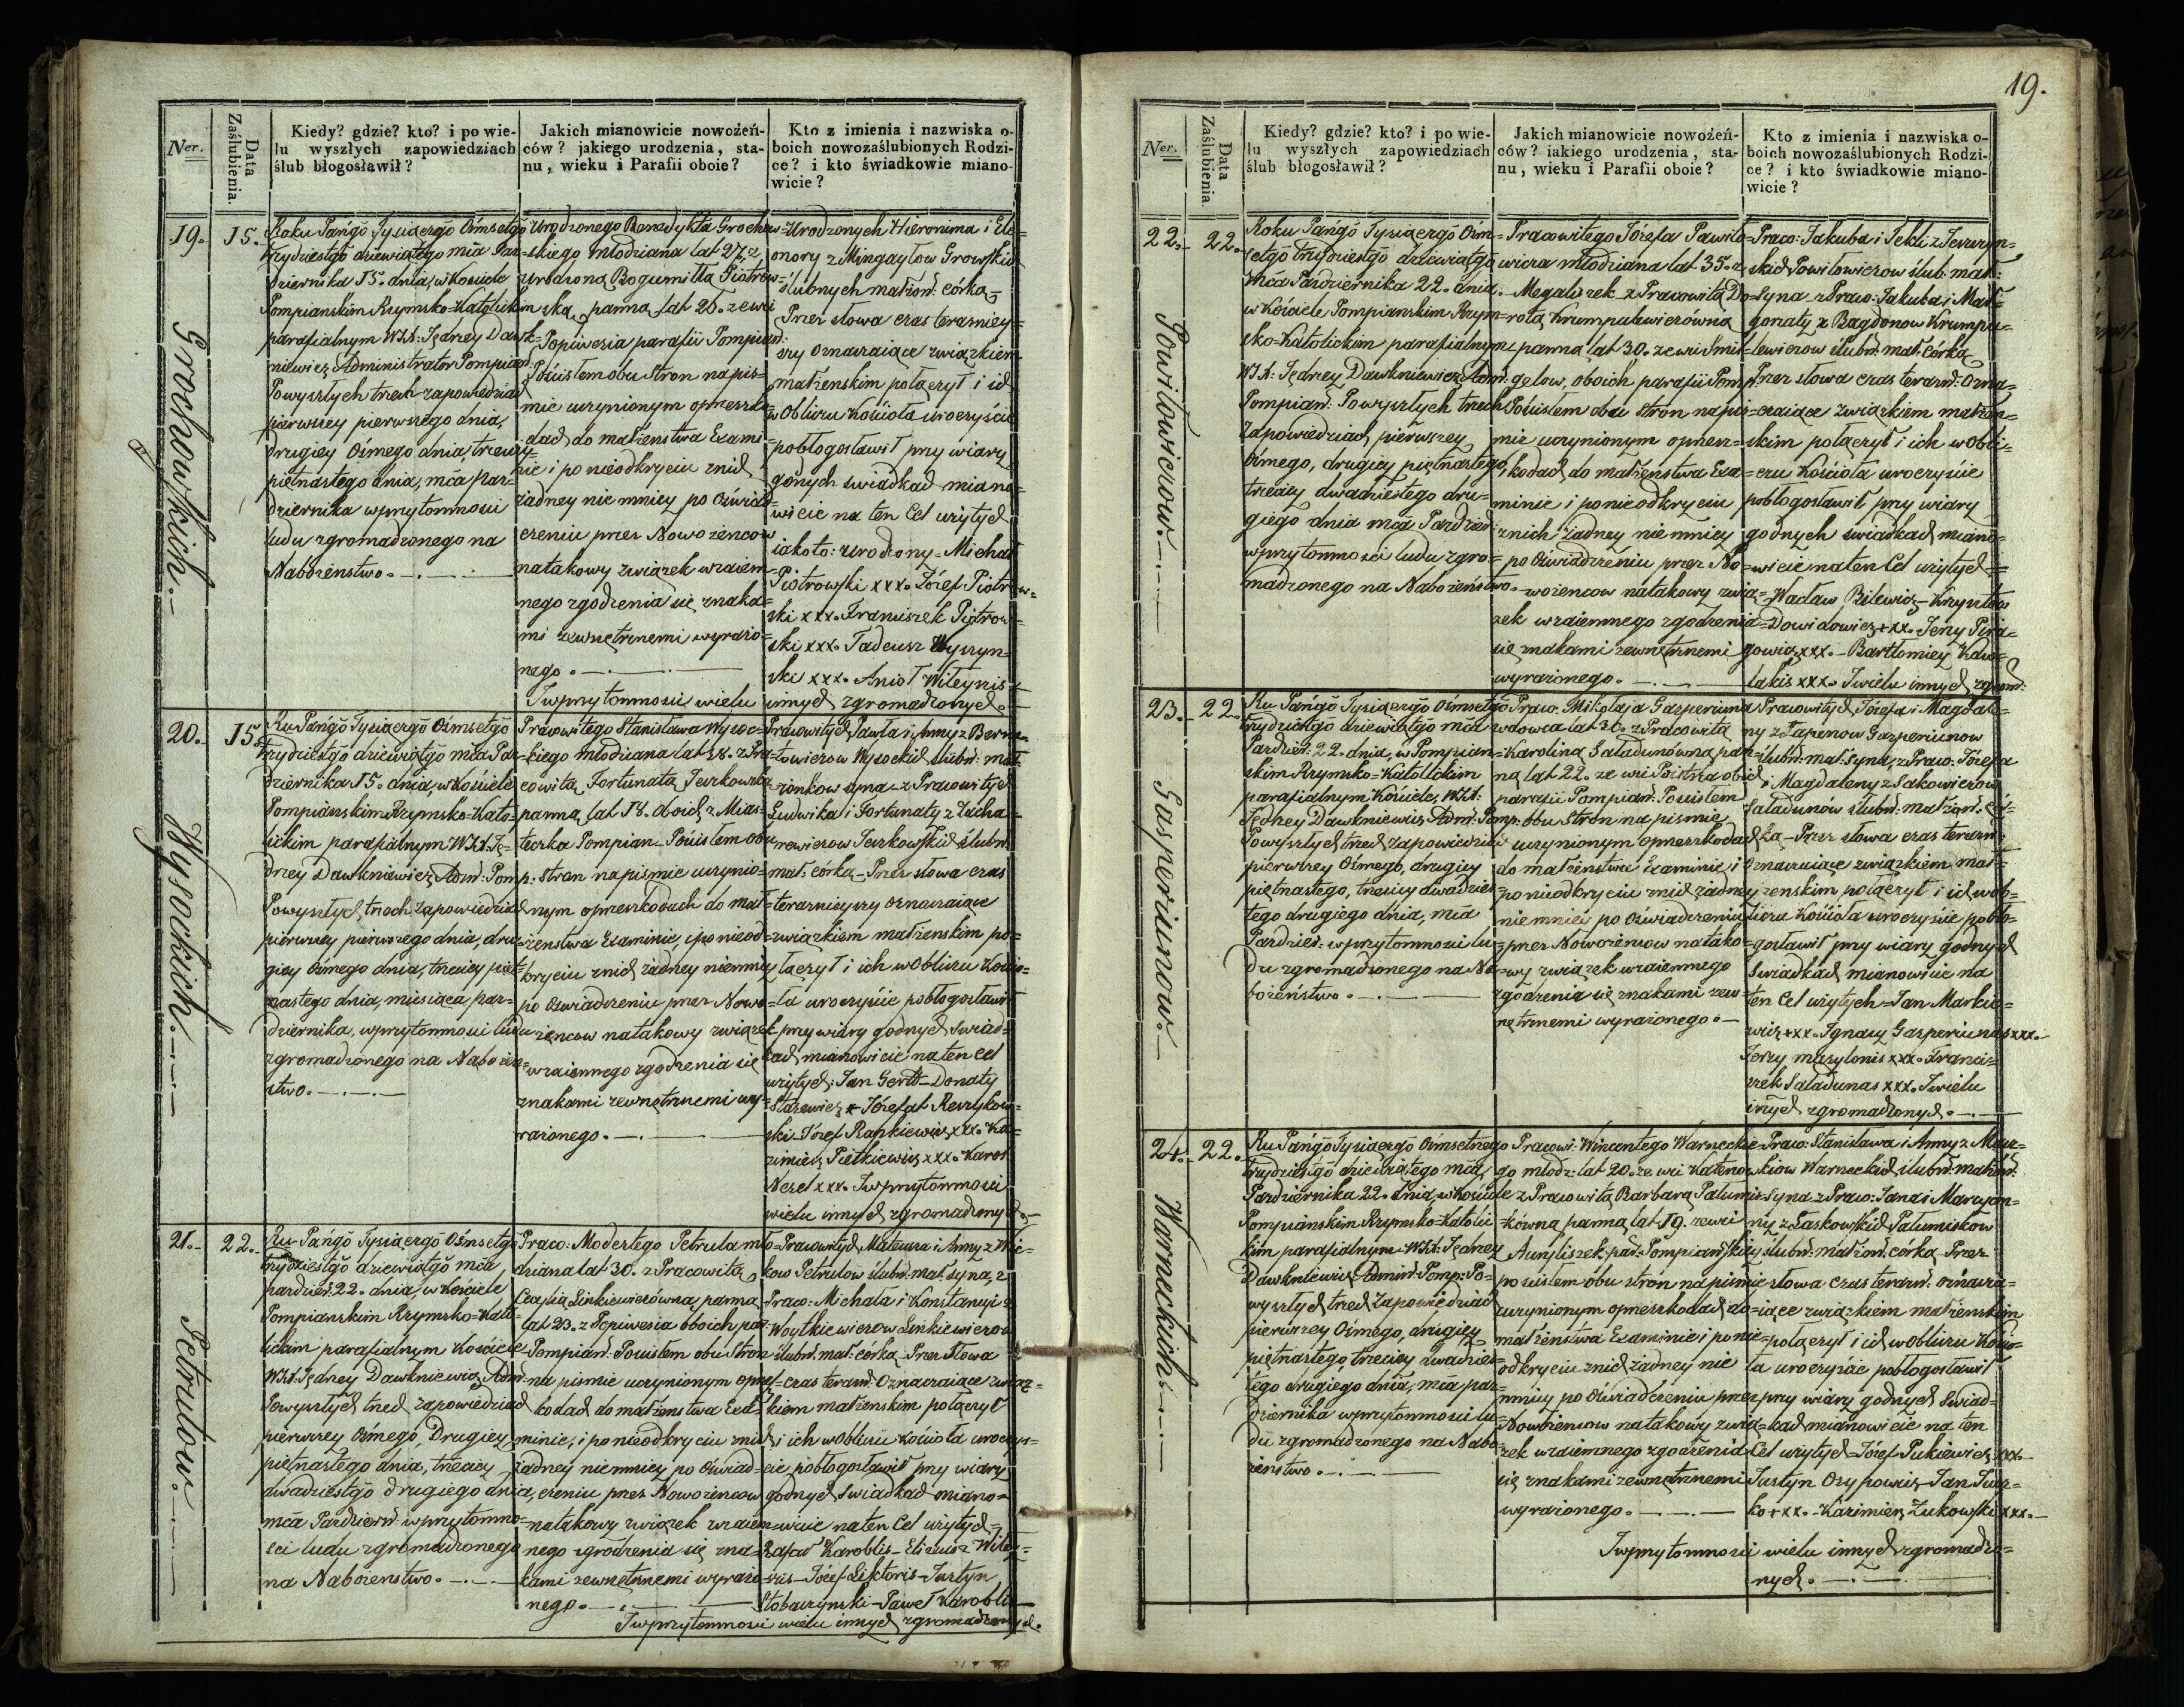 19.
Ner.
Data Zaślubienia.
Kiedy? gdzie? kto? i po wie-
lu wyszłych zapowiedziach
ślub błogosławił?
Jakich mianowicie nowożeń-
ców? jakiego urodzenia, sta-
nu, wieku i Parafii oboie?
Kto z imienia i nazwiska o-
boich nowozaślubionych Rodzi-
ce? i kto świadkowie miano-
wicie?
19.
15.
Grochowskich.
Roku Pańgō Tysiącgō Ośmsetgō
trzydziestgō dziewiątego mca Paź-
dziernika 15. dnia, w Kościele
Pompianskim Rzymsko-Katolickim
parafialnym WJX: Jędrzey Dawk-
niewicz Administrator Pompiań:
Powyszłych trzech zapowiedziach
pierwszey pierwszego dnia,
drugiey Ośmego dnia, trzeciey
piętnastego dnia, mca Paź-
dziernika w przytomnosci
ludu zgromadzonego na
Nabożenstwo.
Urodzonego Benedykta Grochow-
skiego młodziana lat 27, z
Urodzoną Bogumiłłą Piotrow-
ską, panną, lat 26. ze wsi
Popiwesia parafii Pompiań:
Pouistem obu Stron na piś-
mie uczynionym o przeszko-
dach do małżenstwa Exami-
nie i po nieodkryciu znich
żadney nie mniey po Oświad-
czeniu przez Nowożencow
natakowy związek wzaiem-
nego zgodzenia się znaka-
mi zewnętrznemi wyrażo-
nego.
I w przytomnosci wielu
Urodzonych Hieronima i Ele-
onory z Mingayłow Growskich
ślubnych małżon: córką
Przez słowa czas teraznieyszy
Oznaczaiące związkiem
małżenskim połączył i ich
w Obliczu Kościoła uroczyście
pobłogosławił przy wiary
godnych świadkach miano-
wicie na ten Cel użytych
iakoto: Urodzony Michał
Piotrowski xxx. Józef Piotrow-
ski xxx. Franciszek Piotrow-
ski xxx. Tadeusz Wyszyn-
ski xxx. Anioł Wileynis
innych zgromadzonych.
20.
15.
Wysockich.
Ru Pańgō Tysiącgō Ośmsetgō
trzydziestgō dziewiątgō mca Paź-
dziernika 15. dnia, w Kościele
Pompianskim Rzymsko-Kato-
lickim parafialnym WJX. Ję-
drzey Dawkniewicz Adm: Pomp:
Powyszłych trzech Zapowiedziach
pierwszey pierwszego dnia, dru-
giey Ośmego dnia, trzeciey pięt-
nastego dnia, miesiąca, paź-
dziernika, w przytomnosci ludu
zgromadzonego na Nabożen-
stwo.
Pracowitego Stanisława Wysoc-
kiego młodziana lat 28. z Pra-
cowitą Fortunatą Jeczkowską
panną lat 18. oboich z Mias-
teczka Pompian Pouistem obu
stron na pismie uczynio-
nym o przeszkodach do mał-
żenstwa Examinie, i po nieod-
kryciu znich żadney niemniey
po Oświadczeniu przez Nowo-
żencow natakowy związek
wzaiemnego zgodzenia się
znakami zewnętrznemi wy-
rażonego.
Pracowitych Pawła i Anny z Berna-
towiczow Wysockich ślubn: mał-
żonkow syna z Pracowitych
Ludwika i Fortunaty z Zacha-
rewiczow Jeczkowskich ślubn:
mał: córką Przez słowa czas
teraznieyszy oznaczaiące
związkiem małżenskim po-
łączył i ich w Obliczu Kościo-
ła uroczyście pobłogosławił
przy wiary godnych świad-
kach mianowicie na ten Cel
użytych: Jan Gertt Donaty
Starewicz Józefat Reczykow-
ski Józef Rapkiewicz xxx. Ka-
zimierz Pietkiewicz xxx. Karol
Nezel xxx. I w przytomnosci
wielu innych zgromadzonych.
21.
22.
Petrulow.
Ru Pańgō Tysiącgō Ośmsetgo
trzydziestgō dziewiątgō mca
paździer: 22. dnia, w Kościele
Pompianskim Rzymsko-Kato-
lickim parafialnym Kościele
WJX. Jędrzey Dawkniewicz Adm:
Powyszłych trzech zapowiedziach
pierwszey Ośmego, Drugiey
piętnastego dnia, trzeciey
dwadziestgō drugiego dnia,
mca Październ: w przytomno-
sci ludu zgromadzonego
na Nabożenstwo.
Praco: Modestego Petrula mło-
dziana lat 30. z Pracowitą
Cecylią Linkiewiczówną, panną
lat 23. z Popiwesia oboich par:
Pompiań: Pouistem obu Stron
na pismie uczynionym o przesz-
kodach do małżenstwa Exa-
minie, i po nieodkryciu znich
żadney niemniey po Oświad-
czeniu przez Nowożencow
natakowy związek wzaiem-
nego zgodzenia się zna-
kami zewnętrznemi wyrażo-
nego.
Pracowitych Mateusza i Anny z Wic-
kow Petrulow ślubn: mał: syna, z
Praco: Michała i Konstancyi z
Woytkiewiczow Linkiewiczow
ślubn: mał: córką Przez słowa
czas terazn: Oznaczaiące związ-
kiem małżenskim połączył
i ich w Obliczu Kościoła uroczys-
cie pobłogosławił przy wiary
godnych świadkach miano-
wicie na ten Cel użytych
Rafał Karoblis Elizeusz Wiley-
szis Józef Liktoris Justyn
Stobaczynski Paweł Karoblis
I w przytomnosci wielu innych zgromadzonych.
Ner.
Data Zaślubienia.
Kiedy? gdzie? kto? i po wie-
lu wyszłych zapowiedziach
ślub błogosławił?
Jakich mianowicie nowożeń-
ców? iakiego urodzenia, sta-
nu, wieku i Parafii oboie?
Kto z imienia i nazwiska o-
boich nowozaślubionych Rodzi-
ce? i kto świadkowie miano-
wicie?
22.
22.
Powiłowiczow.
Roku Pańgō Tysiącgō Ośm-
setgō trzydziestgō dziewiątgō
mca Pazdziernika 22. dnia
w Kościele Pompianskim Rzym-
sko-Katolickim parafialnym
WJX: Jędrzey Dawkniewicz Adm:
Pompiań: Powyszłych trzech
Zapowiedziach, pierwszey
Ośmego, drugiey piętnastego,
trzeciey dwadziestego dru-
giego dnia mca Paździer:
w przytomnosci ludu zgro-
madzonego na Nabożenstwo.
Pracowitego Józefa Pawiło-
wicza młodziana lat 35. z
Megaliszek z Pracowitą Do-
rotą Krumpulewiczówną
panną lat 30. ze wsi Smil-
gelow, oboich parafii Pomp:
Pouistem obu Stron na piś-
mie uczynionym o przesz-
kodach do małżenstwa Exa-
minie i po nieodkryciu
znich żadney nie mniey
po Oświadczeniu przez No-
wożencow natakowy zwią-
zek wzaiemnego zgodzenia
się znakami zewnętrznemi
wyrażonego.
Praco: Jakuba i Tekli z Jewzryn-
skich Powiłowiczow ślub: mał:
Syna z Praw: Jakuba i Mał-
gorzaty z Bagdonow Krumpu-
lewiczow ślubn: mał: córką
Przez słowa czas terazn: Ozna-
czaiące związkiem małżen-
skim połączył i ich w Obli-
czu Kościoła uroczyście
pobłogosławił przy wiary
godnych świadkach miano-
wicie na ten Cel użytych
Wacław Bilewicz Krzysztof
Dowidowicz xxx. Jerzy Pira-
gowicz xxx. Bartłomiey Kaw-
lakis xxx. I wielu innych zgrom:
23.
22.
Gasperiunow.
Ru Pańgō Tysiącgō Ośmsetgō
trzydziestgō dziewiątgō mca
Paździer: 22. dnia, w Pompian-
skim Rzymsko-Katolickim
parafialnym Kościele, WJX:
Jędrzey Dawkniewicz Adm: Pomp:
Powyszłych trzech zapowiedziach
pierwszey Ośmego, drugiey
piętnastego, trzeciey dwadzies-
tego drugiego dnia, mca
Paździer: w przytomnosci lu-
du zgromadzonego na Na-
bożeństwo.
Praw: Mikołaja Gasperiuna
wdowca lat 30. z Pracowitą
Karoliną Saladunówną pan-
ną lat 22. ze wsi Poistra oboich
parafii Pompiań: Pouistem
obu Stron na pismie
uczynionym o przeszkodach
do małżenstwa Examinie, i
po nieodkryciu znich żadney
niemniey po Oświadczeniu
przez Nowożencow natako-
wy związek wzaiemnego
zgodzenia się znakami zew-
nętrznemi wyrażonego.
Pracowitych Józefa i Magdale-
ny z Łapenow Gasperiunow
ślubn: mał: Syna, z Praw: Józefa
i Magdaleny z Sakowiczow
Saladunów ślubn: małżon: cór-
ką Przez słowa czas terazn:
Oznaczaiące związkiem mał-
żenskim połączył i ich w Ob-
liczu Kościoła uroczyście pobło-
gosławił przy wiary godnych
Swiadkach mianowicie na
ten Cel użytych Jan Markie-
wicz xxx. Ignacy Gasperiunas xxx.
Jerzy Masylonis xxx. Franci-
szek Saladunas xxx. I wielu
inych zgromadzonych.
24.
22.
Warneckich.
Ru Pańgō Tysiącgō Ośmsetnego
trzydziestgō dziewiątego mca,
Pazdziernika 22. dnia, w Kościele
Pompianskim Rzymsko-Katolic-
kim parafialnym WJX: Jędrzey
Dawkniewicz Admin: Pomp: Po-
wyszłych trzech Zapowiedziach
pierwszey Ośmego, drugiey
piętnastego, trzeciey dwadzies-
tego drugiego dnia, mca paź-
dziernika w przytomnosci lu-
du zgromadzonego na Nabo-
żenstwo.
Pracowi: Wincentego Warneckie-
go młodz: lat 20. ze wsi Katenow
z Pracowitą Barbarą Patumis-
kówną panną, lat 19. ze wsi
Aunyliszek par: Pompiańskiey
pouistem obu stron na pismie
uczynionym o przeszkodach do
małżenstwa Examinie i po nie-
odkryciu znich żadney nie
mniey po Oświadczeniu przez
Nowożencow natakowy zwią-
zek wzaiemnego zgodzenia
się znakami zewnętrznemi
wyrażonego.
Praco: Stanisława i Anny z Maz-
kiow Warneckich ślubn: małżon:
Syna z Praw: Jana i Maryan-
ny z Laskowskich Patumiskow
ślubn: małżon: córką Przez
słowa czas terazn: oznacza-
iące związkiem małżenskim
połączył i ich w Obliczu Kościo-
ła uroczyście pobłogosławił
przy wiary godnych Swiad-
kach mianowicie na ten
Cel użytych Józef Pukiewicz xxx.
Justyn Osypowicz Jan Jusz-
ko xxx. Kazimierz Żukowski xxx.
I w przytomnosci wielu innych zgromadzo-
nych.